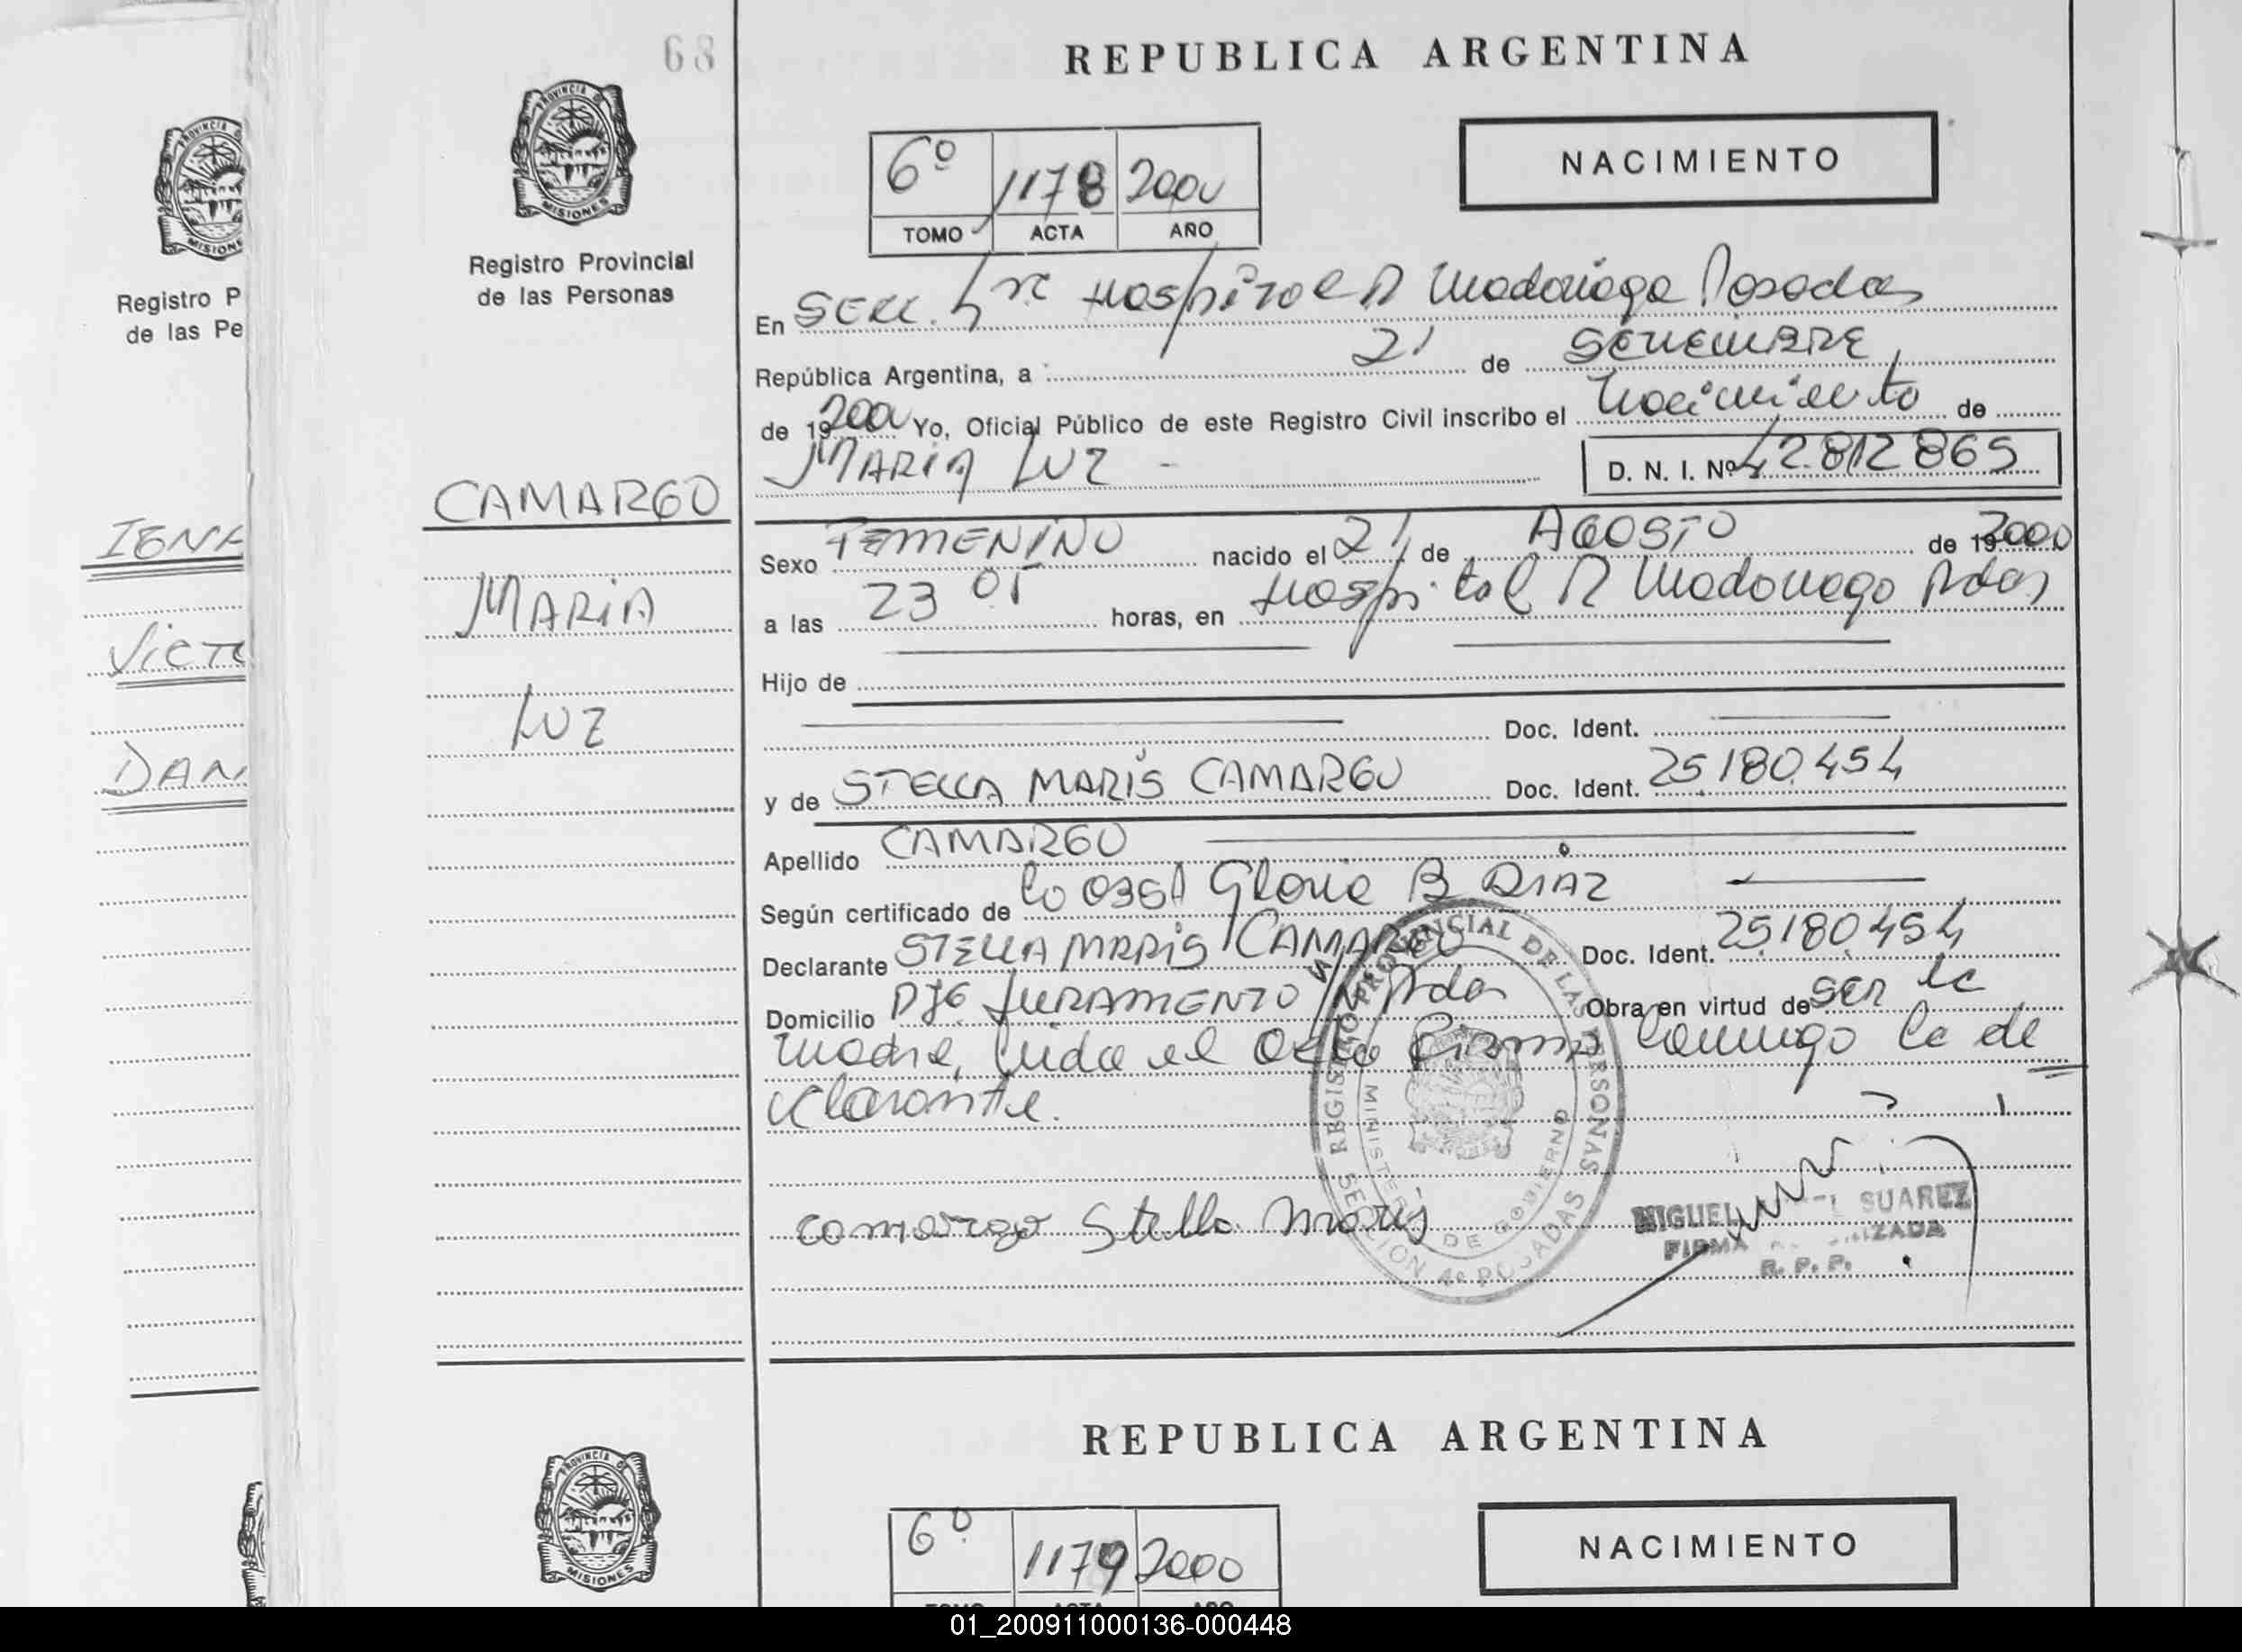 68
REPUBLICA ARGENTINA
PROVINCIA DE
MISIONES
6º 1178 2000
TOMO ACTA AÑO
NACIMIENTO
Registro Provincial
de las Personas
Registro P
de las Pe
En Secc. Hospital R Madariaga Posadas
República Argentina, a 21 de SETIEMBRE
de 192000 Yo, Oficial Público de este Registro Civil inscribo el Nacimiento de
MARIA LUZ -
D. N. I. Nº 42812865
CAMARGO
MARIA
LUZ
IGNA
VICTO
DAN
Sexo FEMENINO nacido el 21 de AGOSTO de 192000
a las 23 05 horas, en Hospital R Madariaga Pdas
Hijo de
Doc. Ident.
y de STELLA MARIS CAMARGO Doc. Ident. 25.180.454
Apellido CAMARGO
Según certificado de Gloria B DIAZ
Declarante STELLA MARIS CAMARGO Doc. Ident. 25180.454
Domicilio JURAMENTO Pdas Obra en virtud de ser la
madre, Leida el Acta Firma Conmigo la de
clarante.
REGISTRO PROVINCIAL DE LAS PERSONAS
MINISTERIO DE GOBIERNO
SECCION 4ª POSADAS
Camargo Stella Maris
MIGUEL SUAREZ
FIRMA
R. P. P.
REPUBLICA ARGENTINA
PROVINCIA DE
MISIONES
6º 1179 2000
TOMO ACTA AÑO
NACIMIENTO
01_200911000136-000448